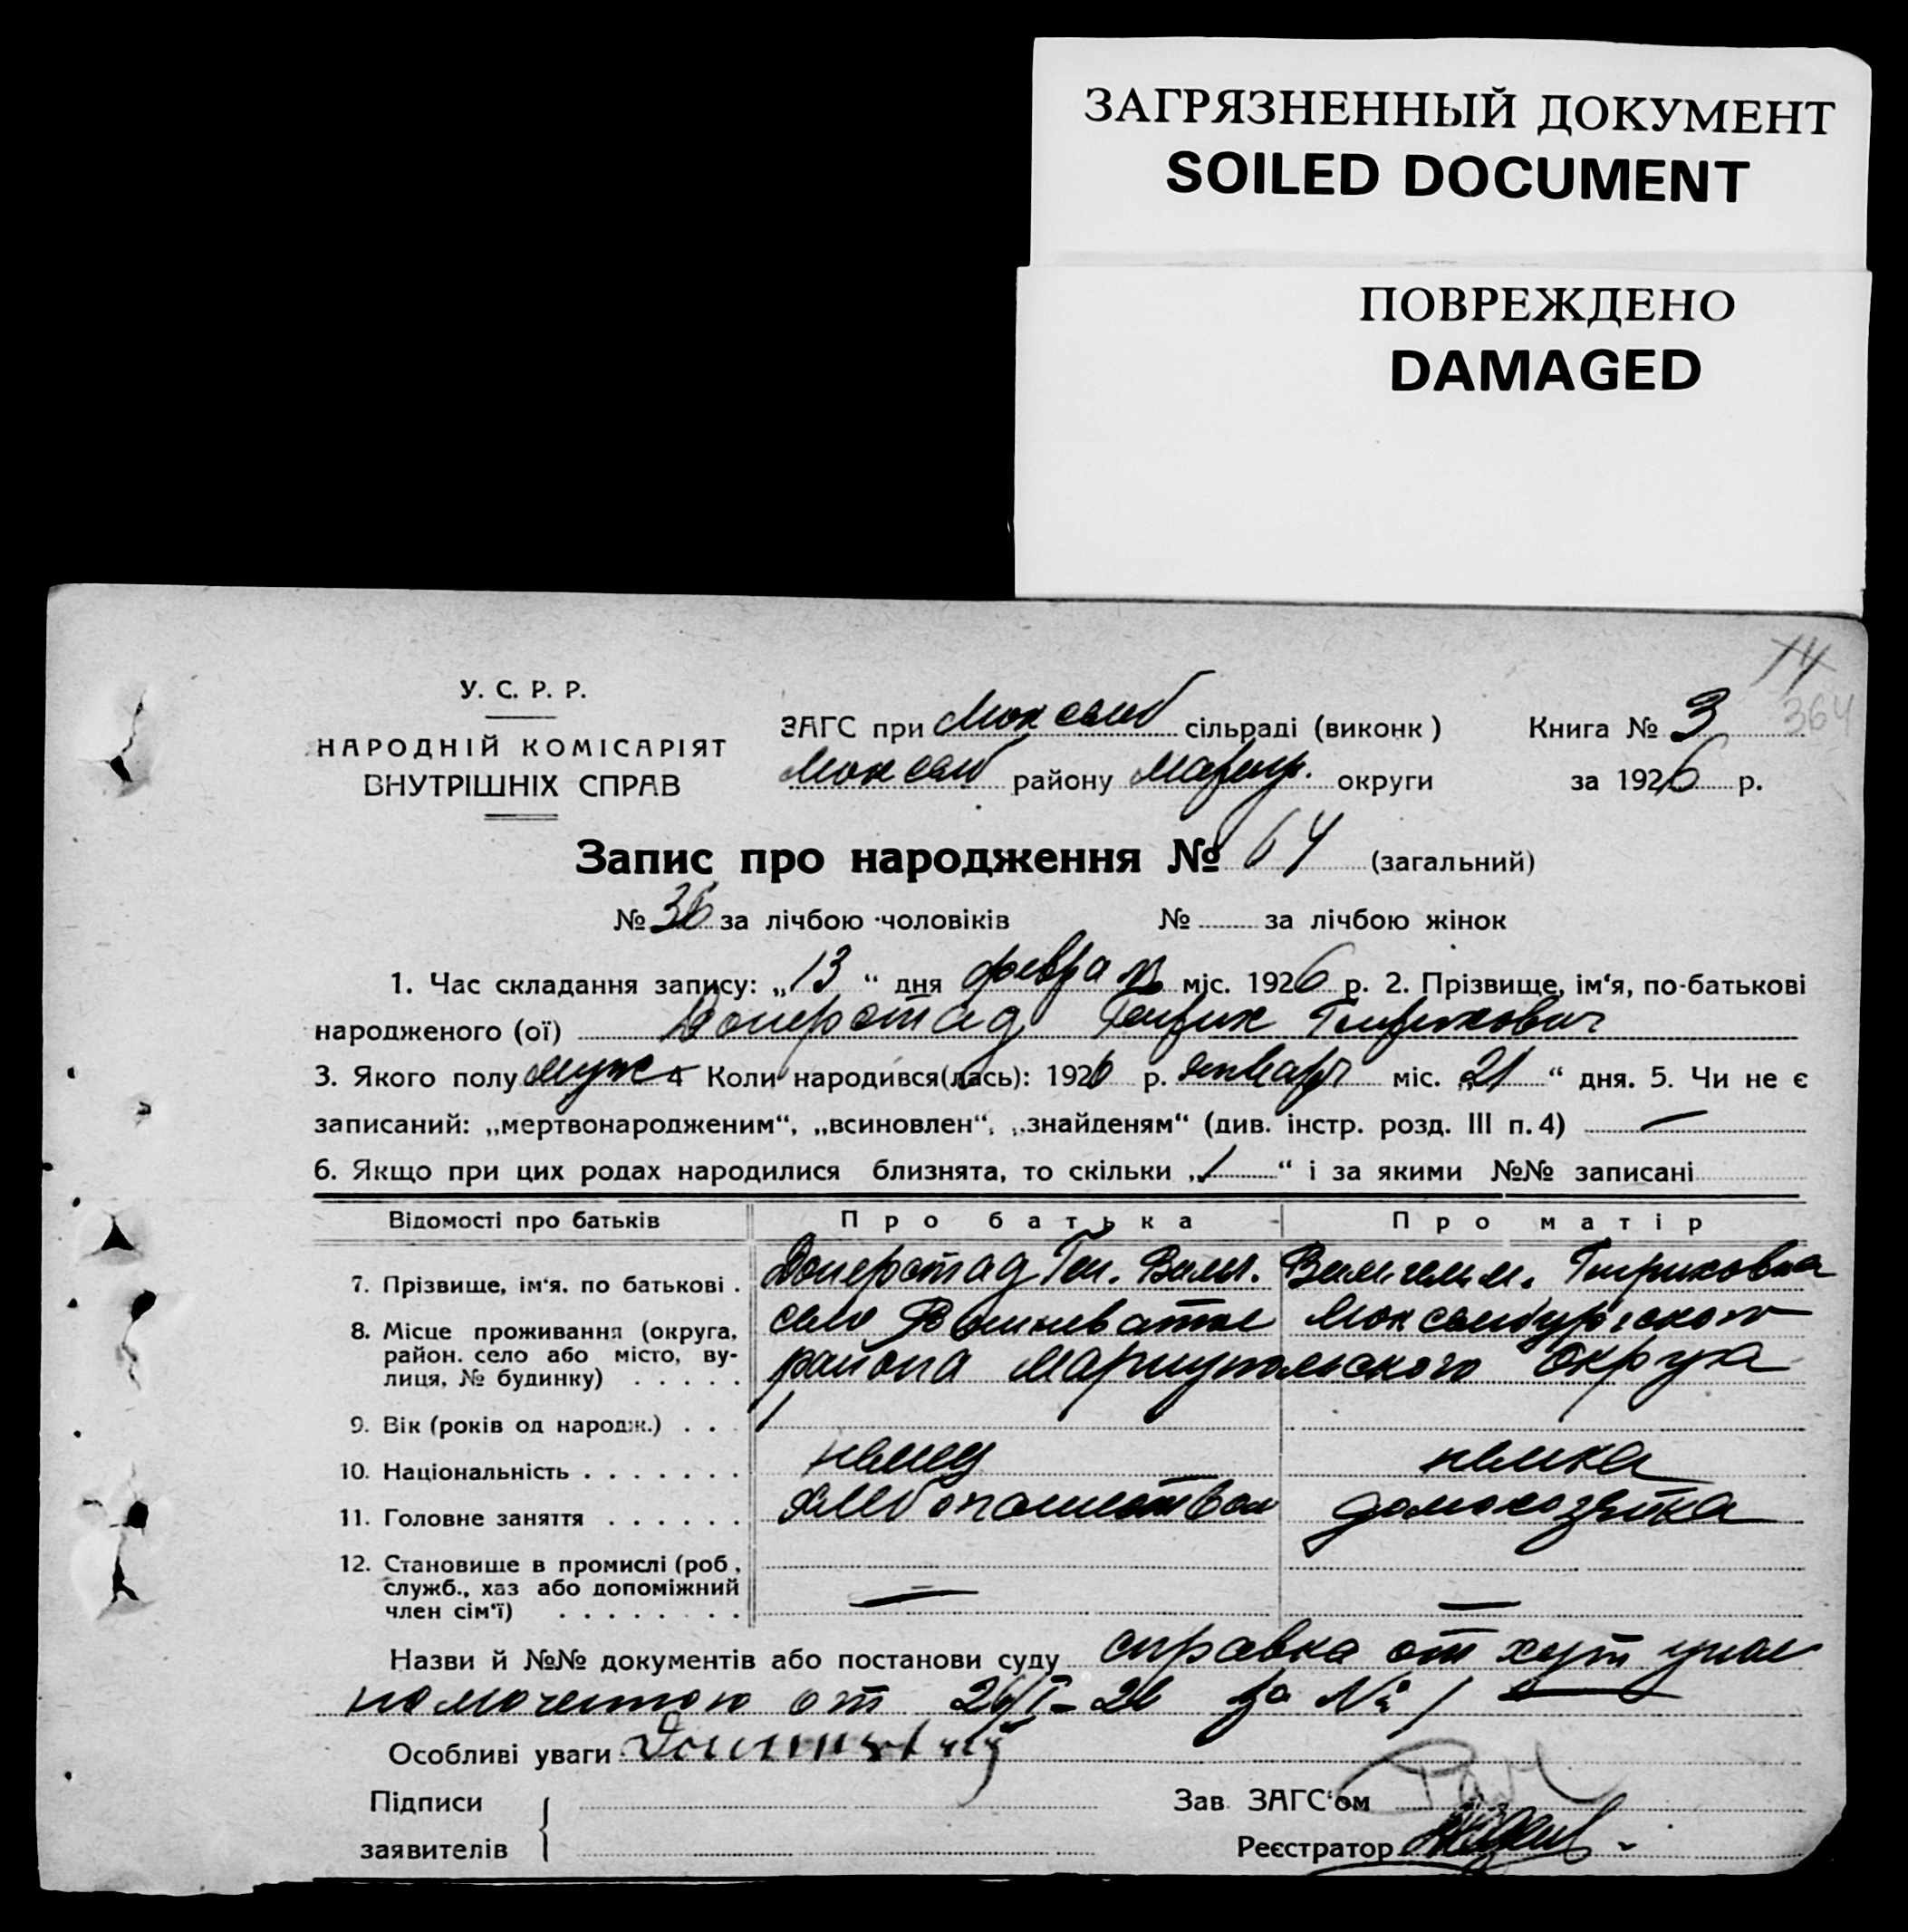 ЗАГРЯЗНЕННЫЙ ДОКУМЕНТ
SOILED DOCUMENT
ПОВРЕЖДЕНО
DAMAGED
74
364
У. С. Р. Р.
НАРОДНІЙ КОМІСАРІЯТ
ВНУТРІШНІХ СПРАВ
ЗАГС при Люксемб сільраді (виконк)
Люксемб району Мариуп. округи
Книга № 3
за 1926 р.
Запис про народження № 64 (загальний)
№ 36 за лічбою чоловіків № за лічбою жінок
1. Час складання запису: „13“ дня февраля міс. 1926 р. 2. Прізвище, ім'я, по-батькові
народженого (ої) Доперштад Генрих Генрихович
3. Якого полу муж 4 Коли народився(лась): 1926 р. январ міс. „21“ дня. 5. Чи не є
записаний: „мертвонародженим“, „всиновлен“, „знайденям“ (див. інстр. розд. III п. 4) —
6. Якщо при цих родах народилися близнята, то скільки „1“ і за якими №№ записані
Відомості про батьків Про батька Про матір
7. Прізвище, ім'я, по батькові . Доперштад Ген. Вильг. Вильгельм. Генриховна
8. Місце проживання (округа, район, село або місто, вулиця, № будинку) село Вишневатое Люксембургского
района Мариупольского округа
9. Вік (років од народж.) . . .
10. Національність . . . . . . . немец немка
11. Головне заняття . . . . . . хлебопашеством домохозяйка
12. Становище в промислі (роб., служб., хаз або допоміжний член сім'ї) . . . . . . . . — —
Назви й №№ документів або постанови суду справка от хут упол
номоченного от 26/I-26 за № 1
Особливі уваги
Підписи
заявителів
Зав. ЗАГС'ом
Реєстратор